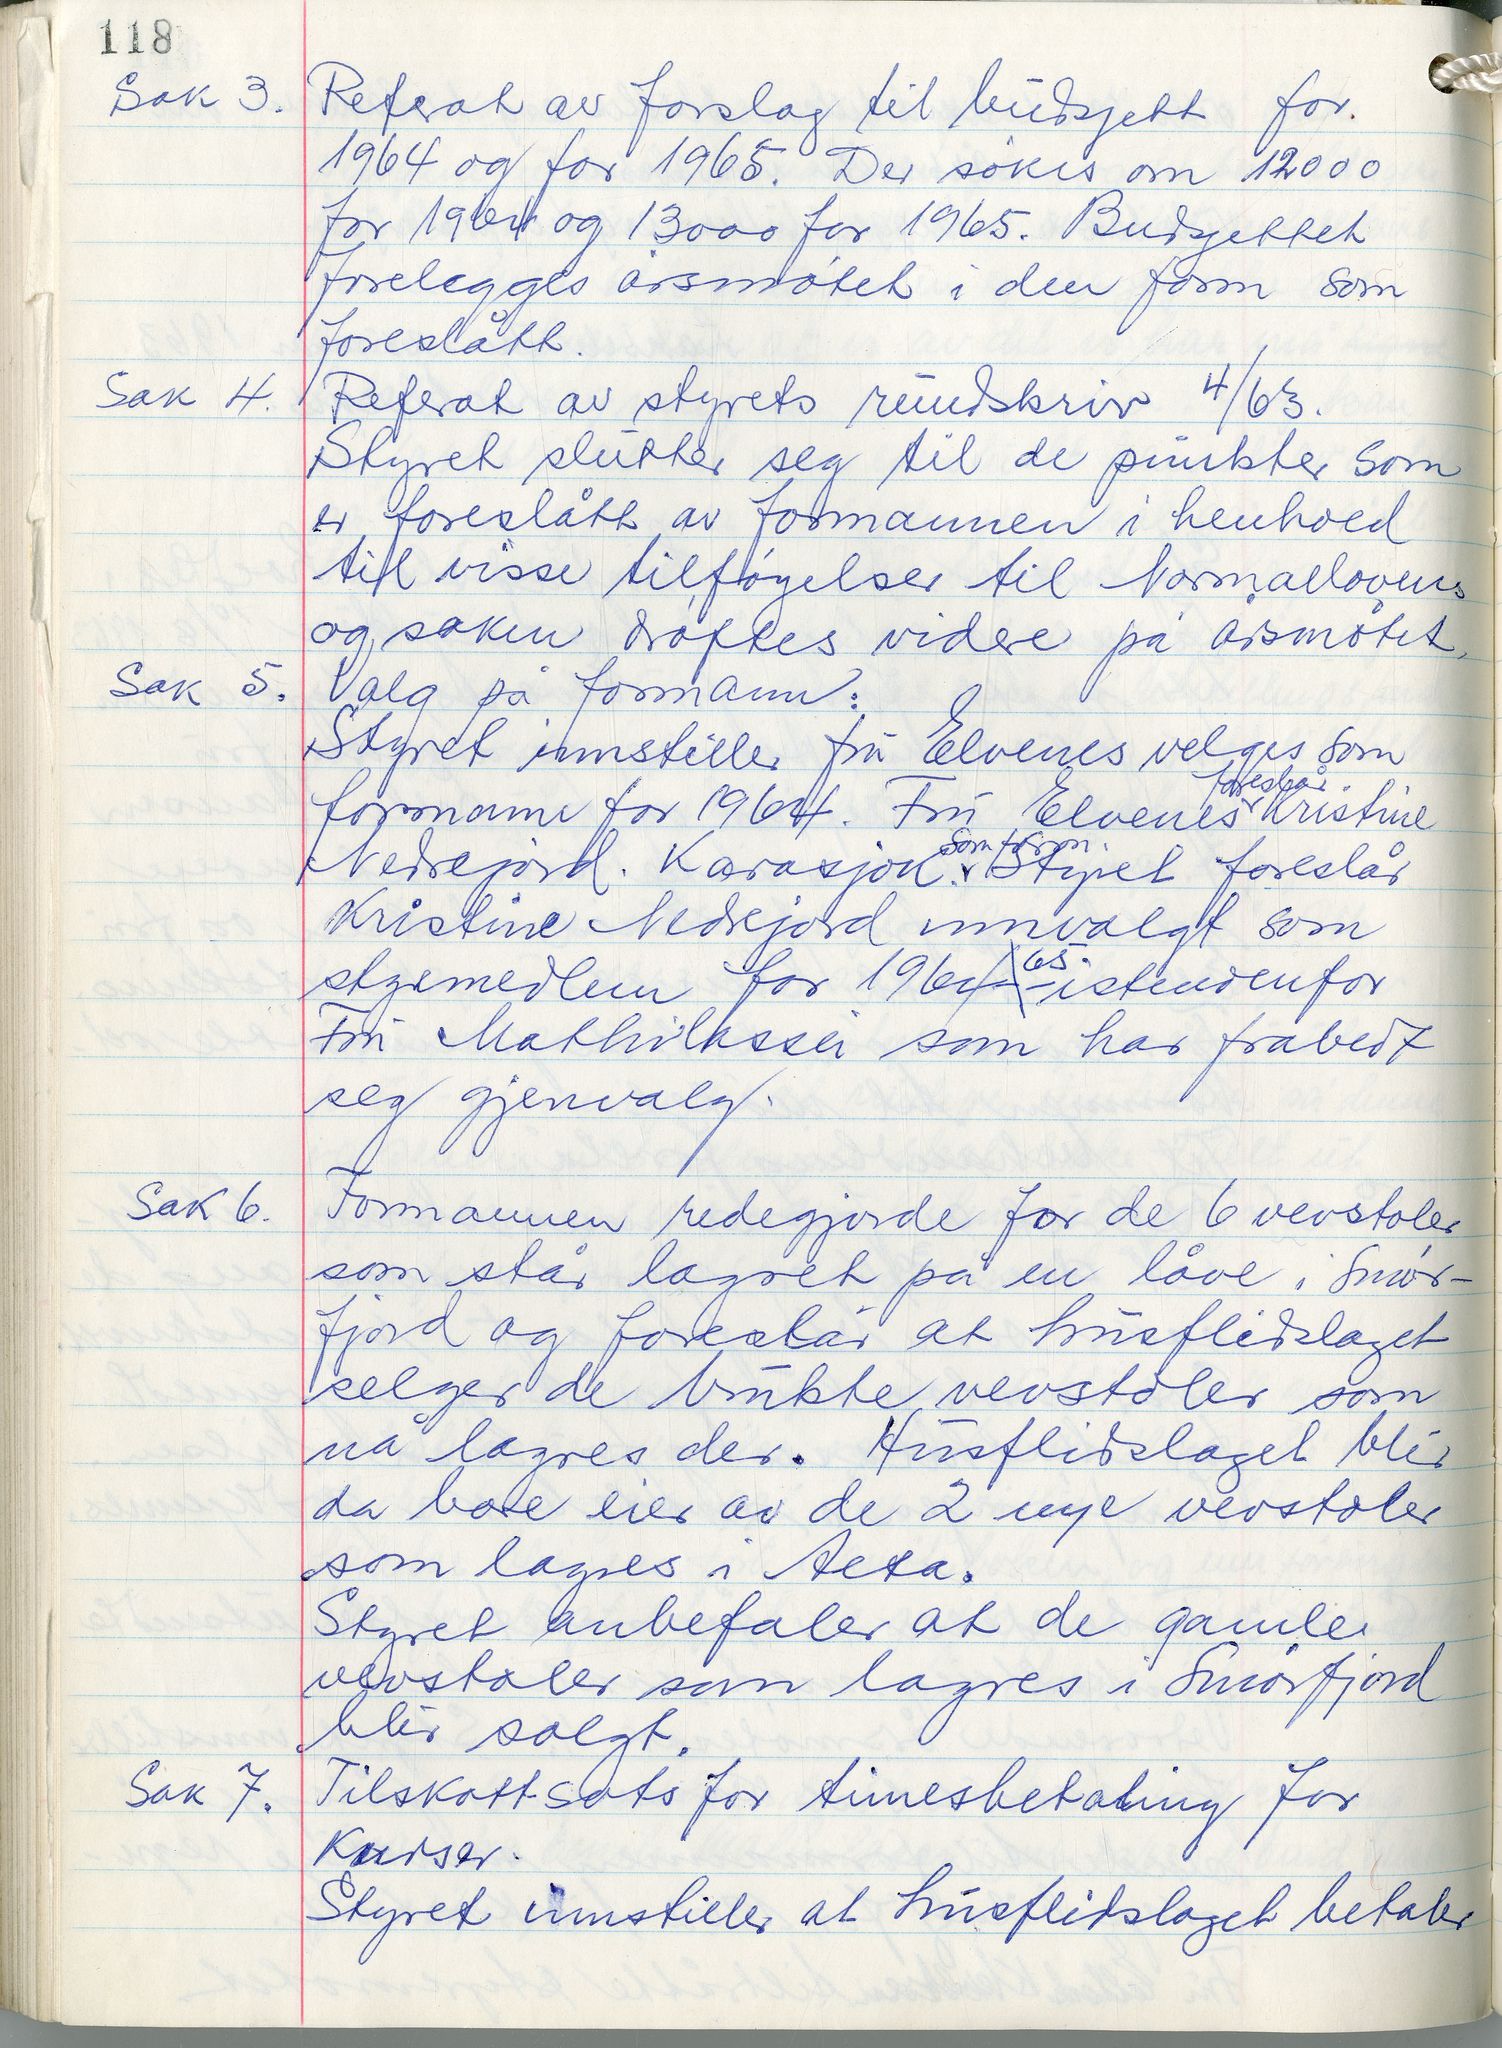 118
Sak 3. Referat av forslag til budsjett for
1964 og for 1965. Der søkes om 12000
for 1964 og 13000 for 1965. Budsjettet
forelegges årsmøtet i den form som
foreslått.
Sak 4. Referat av styrets rundskriv 4/63.
Styret slutter seg til de punkter som
er foreslått av formannen i henhold
til visse tilføyelser til Normallovens
og saken drøftes videre på årsmøtet.
Sak 5. Valg på formann:
Styret innstiller fru Elvenes velges som
formann for 1964. Fru Elvenes foreslår Kristine
Nedrejord. Karasjok. som form Styret foreslår
Kristine Nedrejord innvalgt som
styremedlem for 1964-65. istendenfor
Fru som har frabedt
seg gjenvalg.
Sak 6. Formannen redegjorde for de 6 vevstoler
som står lagret på en låve i Smør-
fjord og foreslår at husflidslaget
selger de brukte vevstoler som
nå lagres der. Husflidslaget blir
da bare eier av de 2 nye vevstoler
som lagres i Alta.
Styret anbefaler at de gamle
vevstoler som lagres i Smørfjord
blir solgt.
Sak 7. Tilskott-sats for timesbetaling for
Kurser.
Styret innstiller at husflidslaget betaler